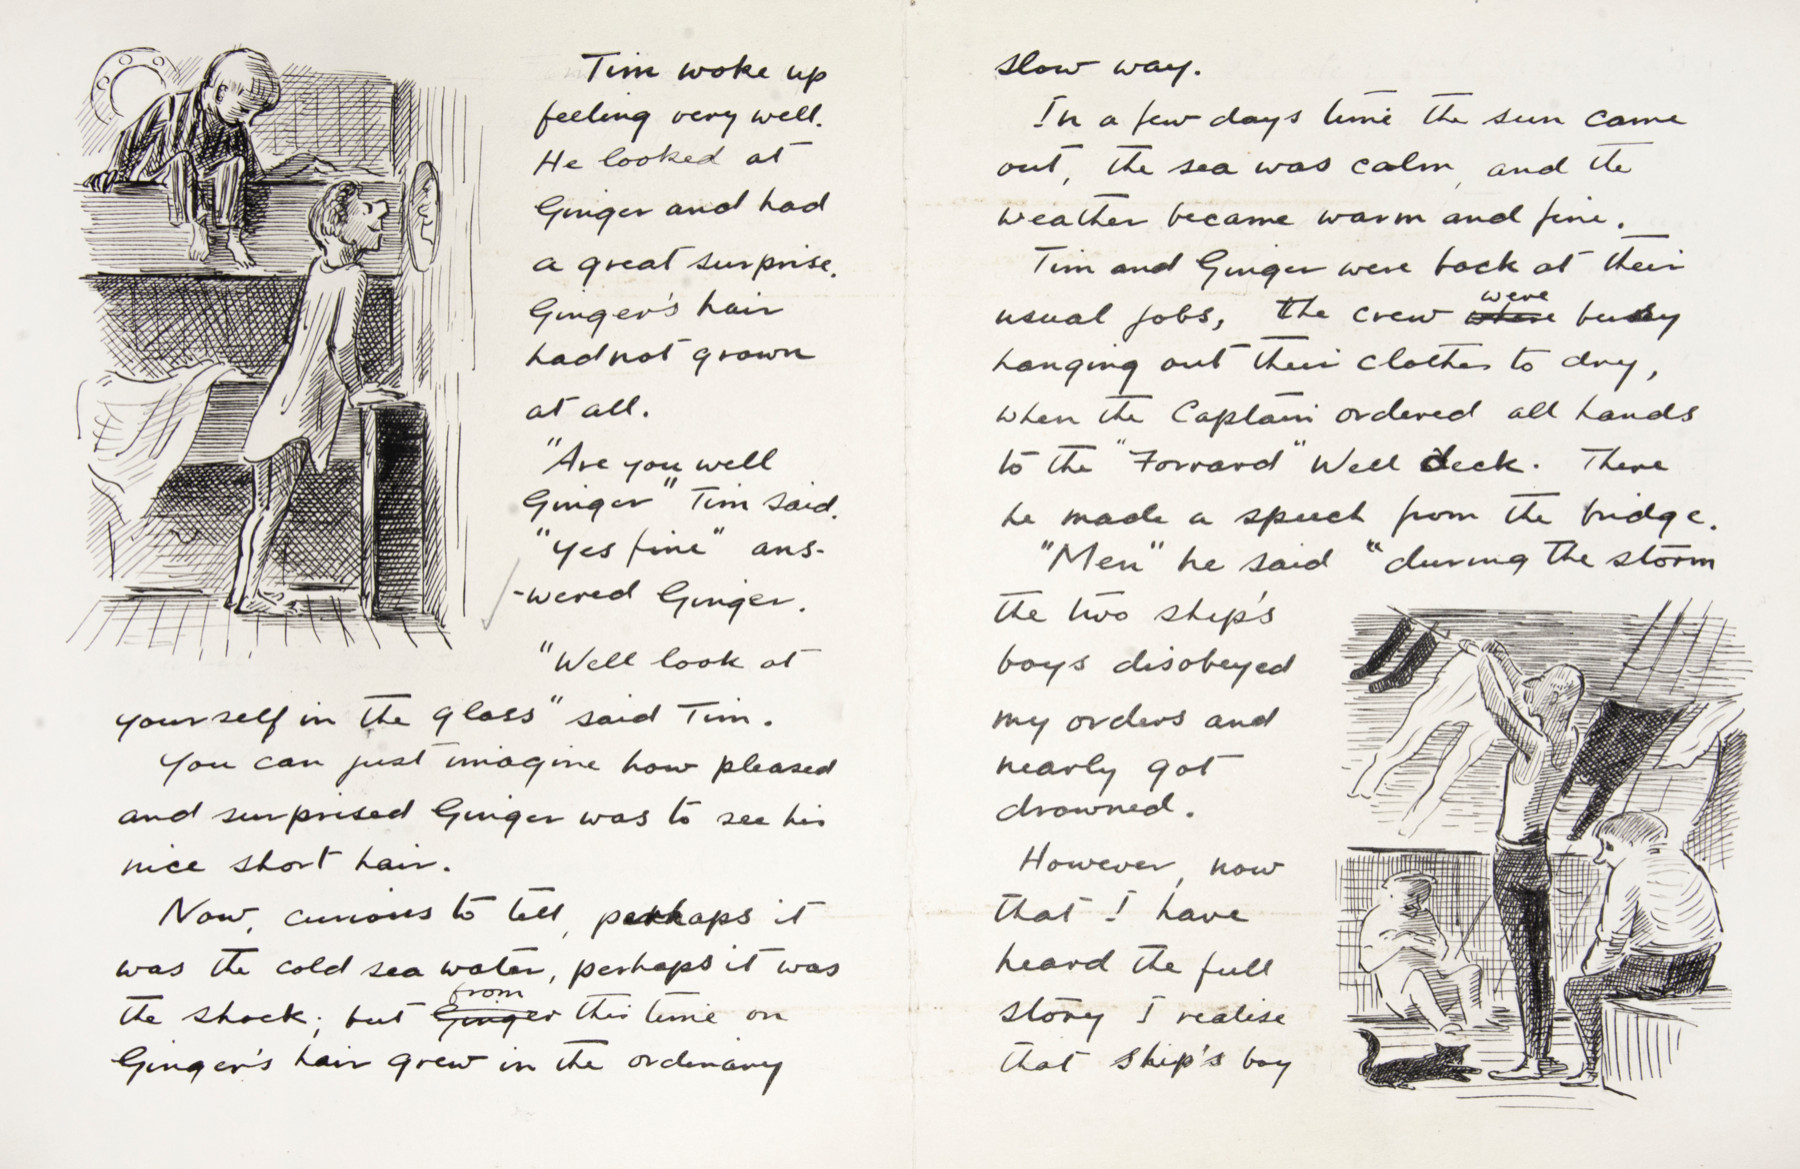 Tim woke up
feeling very well.
He looked at
Ginger and had
a great surprise.
Ginger's hair
had not grown
at all.
"Are you well
Ginger" Tim said.
"Yes fine" ans-
-wered Ginger.
"Well look at
yourself in the glass" said Tim.
You can just imagine how pleased
and surprised Ginger was to see his
nice short hair.
Now, curious to tell, perhaps it
was the cold sea water, perhaps it was
from
the shock; but Ginger this time on
Ginger's hair grew in the ordinary
slow way.
In a few days time the sun came
out, the sea was calm, and the
weather became warm and fine.
Tim and Ginger were back at their
were
usual jobs, the crew where busy
hanging out their clothes to dry,
when the Captain ordered all hands
to the "Forrard" Well deck. There
he made a speech from the bridge.
"Men" he said "during the storm
the two ship's
boys disobeyed
my orders and
nearly got
drowned.
However, now
that I have
heard the full
story I realise
that ship's boy